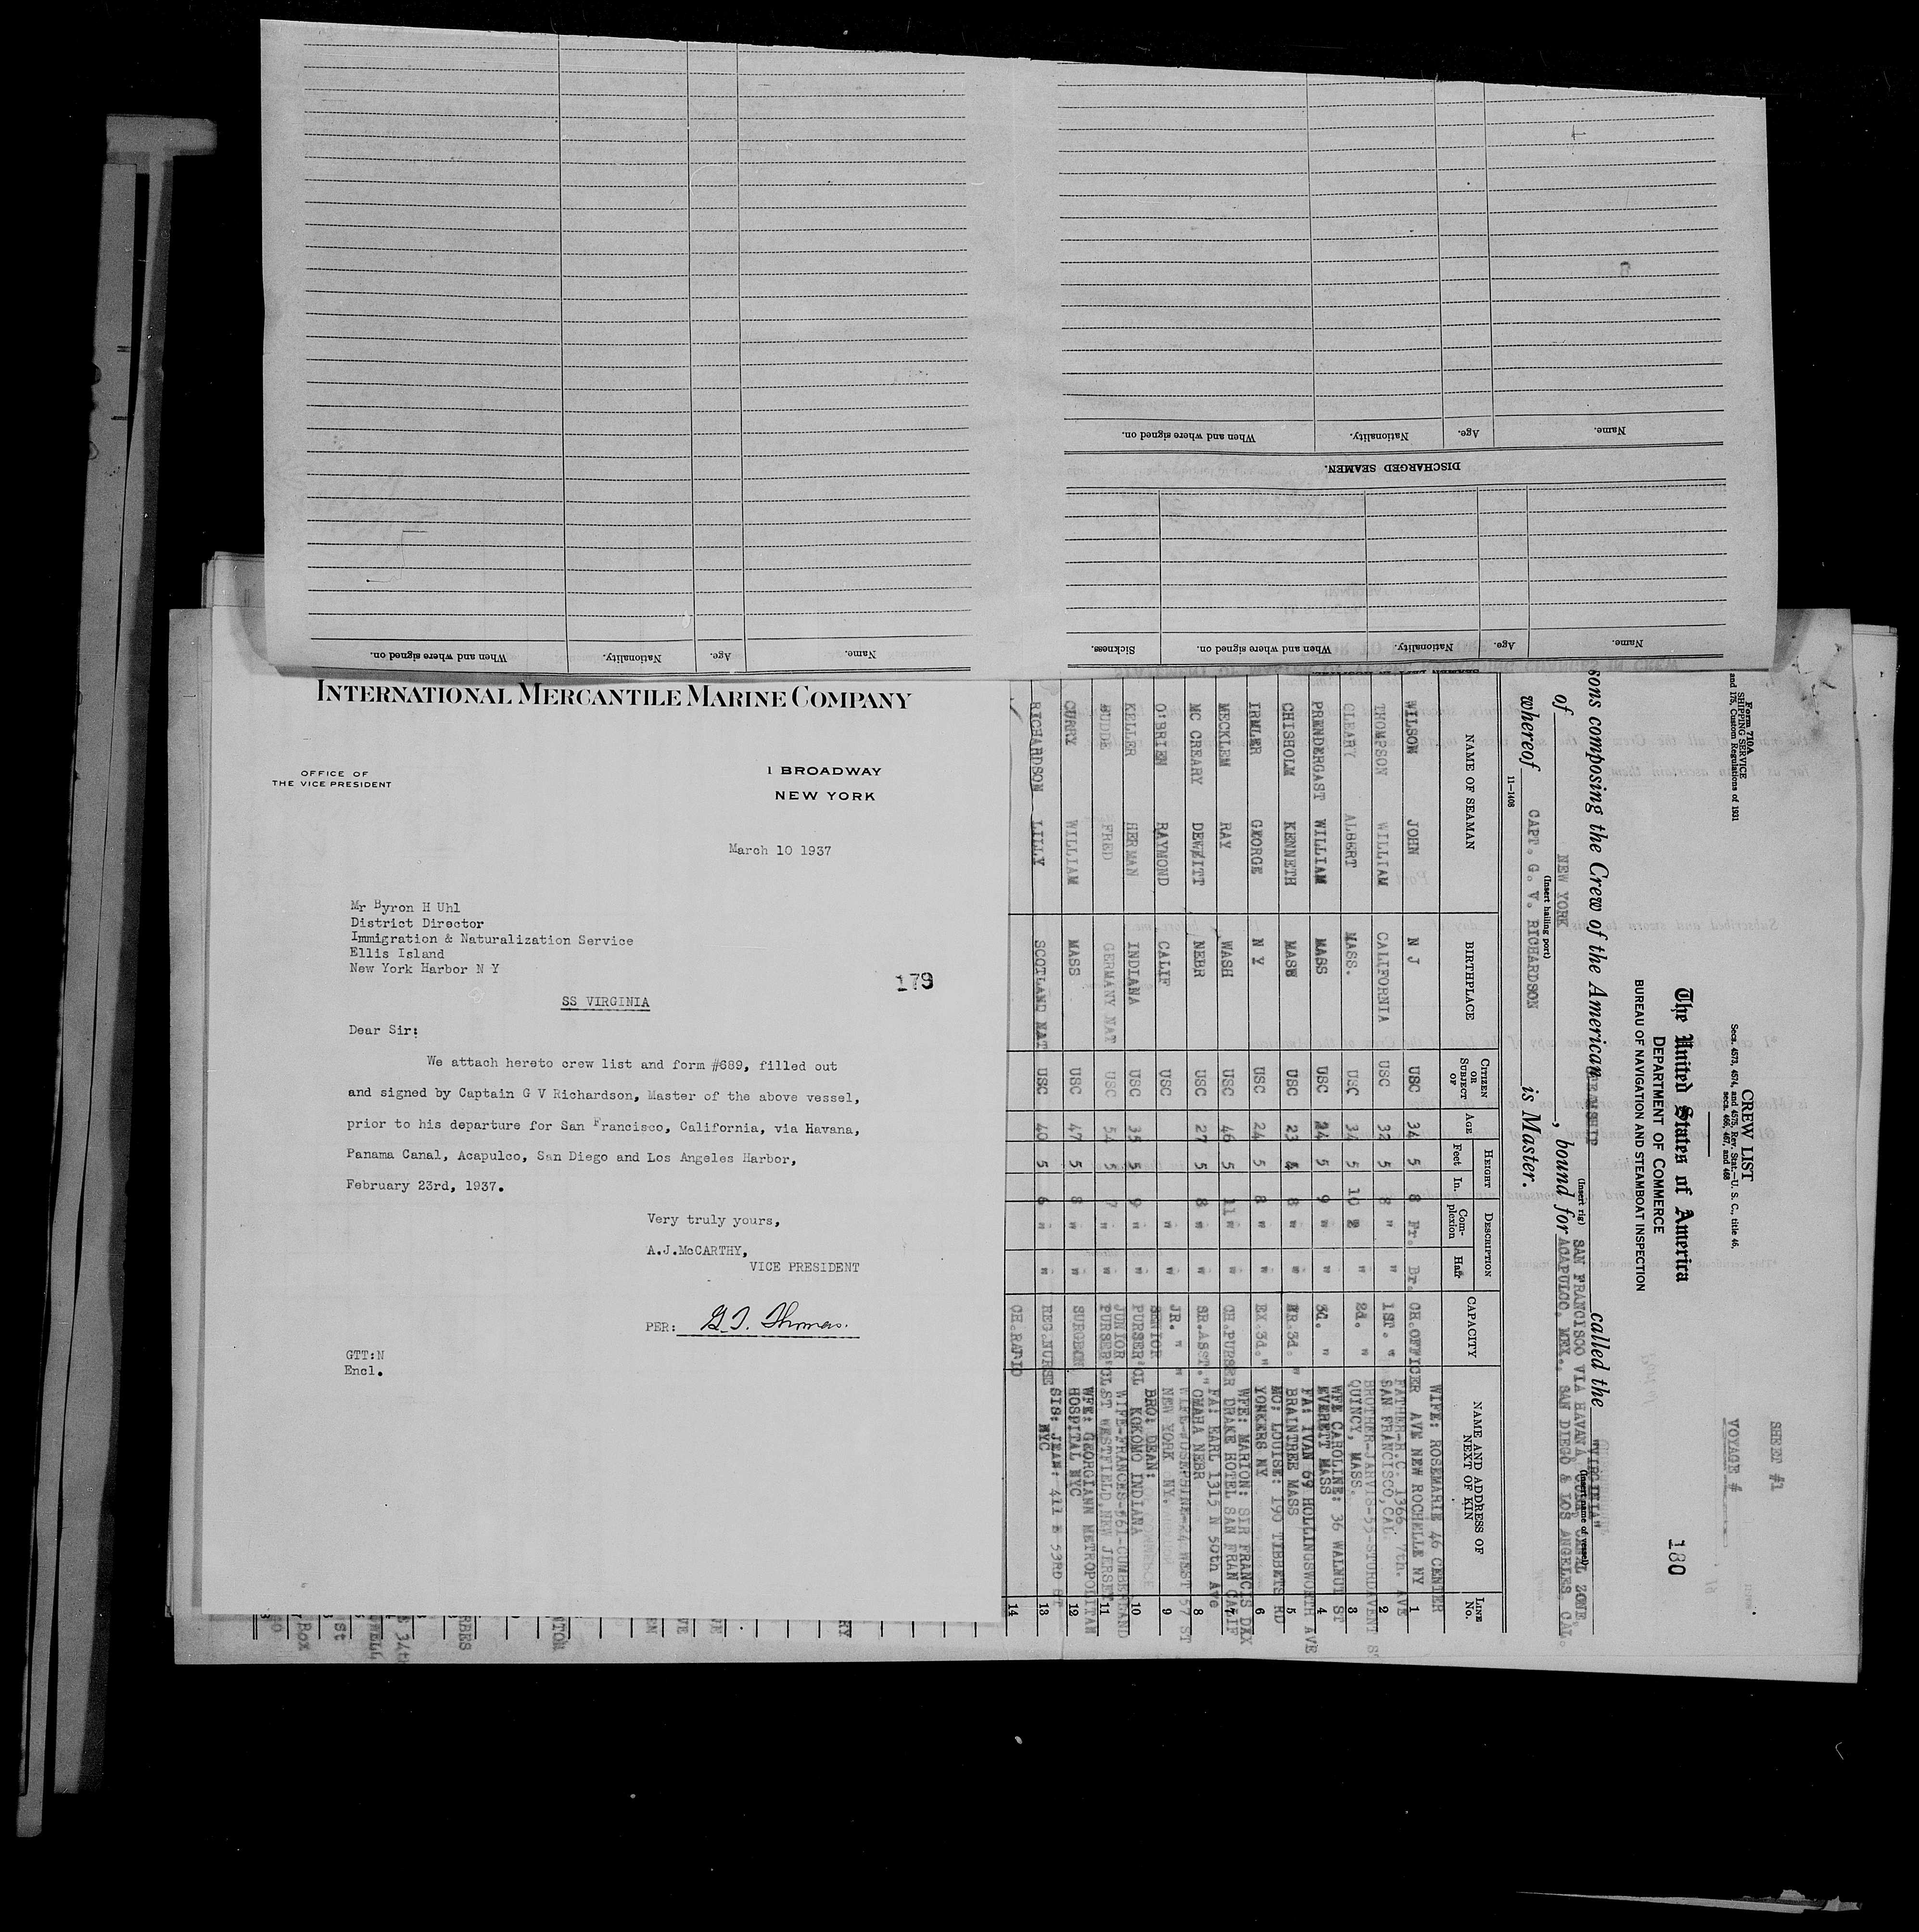 Name.
Age.
Nationality.
When and where signed on.
DISCHARGED SEAMEN.
Name.
Age.
Nationality.
When and where signed on.
Sickness.
Name.
Age.
Nationality.
When and where signed on.
INTERNATIONAL MERCANTILE MARINE COMPANY
OFFICE OF
THE VICE PRESIDENT
1 BROADWAY
NEW YORK
March 10 1937
Mr Byron H Uhl
District Director
Immigration & Naturalization Service
Ellis Island
New York Harbor N Y
179
SS VIRGINIA
Dear Sir:
We attach hereto crew list and form #689, filled out
and signed by Captain G V Richardson, Master of the above vessel,
prior to his departure for San Francisco, California, via Havana,
Panama Canal, Acapulco, San Diego and Los Angeles Harbor,
February 23rd, 1937.
Very truly yours,
A.J.McCARTHY,
VICE PRESIDENT
PER: G. T. Thomas.
GTT:N
Encl.
SHEET #1
VOYAGE #
180
Form 710A
SHIPPING SERVICE
and 175, Custom Regulations of 1931
CREW LIST
Secs. 4573, 4574, and 4575, Rev. Stat.—U. S. C., title 46,
secs. 466, 467, and 468
The United States of America
DEPARTMENT OF COMMERCE
BUREAU OF NAVIGATION AND STEAMBOAT INSPECTION
sons composing the Crew of the American called the
(Insert rig) (Insert name of vessel)
SAN FRANCISCO VIA HAVANA, CUBA CANAL ZONE,
of NEW YORK, bound for ACAPULCO, MEX., SAN DIEGO & LOS ANGELES, CAL.
(Insert hailing port)
whereof CAPT. G. V. RICHARDSON is Master.
11—1408
NAME OF SEAMAN BIRTHPLACE CITIZEN OR SUBJECT OF AGE HEIGHT Feet In. DESCRIPTION Complexion Hair CAPACITY NAME AND ADDRESS OF NEXT OF KIN LINE No.
WIFE: ROSEMARIE 46 CENTER
WILSON JOHN N J USC 34 5 8 Fr. Br. CH.OFFICER AVE NEW ROCHELLE NY 1
FATHER-R.C. 1366 7th. AVE
THOMPSON WILLIAM CALIFORNIA USC 32 5 8 " " 1ST. " SAN FRANCISCO,CAL 2
BROTHER-JARVIS-55-STURDAVENT ST
CLEARY ALBERT MASS. USC 34 5 10 " 2d. " QUINCY, MASS. 3
WFE CAROLINE: 36 WALNUT ST
PRENDERGAST WILLIAM MASS USC 24 5 9 " " 3d. " EVERETT MASS 4
FA: IVAN 69 HOLLINGSWORTH AVE
CHISHOLM KENNETH MASS USC 23 8 " " JR.3d. " BRAINTREE MASS 5
MO: LOUISE: 190 TIBBETS RD
IRMLER GEORGE N Y USC 24 5 8 " " EX.3d. " YONKERS NY 6
WFE: MARION: SIR FRANCIS DAX
MECKLEM RAY WASH USC 46 5 11 " " CH.PURSER DRAKE HOTEL SAN FRAN CALIF 7
FA: EARL 1315 N 50th Ave
MC CREARY DEWEITT NEBR USC 27 5 8 " " SR.ASST. " OMAHA NEBR 8
WIFE-JOSEPHINE-24 WEST 57 ST
O'BRIEN RAYMOND CALIF USC " " JR. " " NEW YORK NY. 9
SENIOR BRO: DEAN:
KELLER HERMAN INDIANA USC 35 5 9 " " PURSER'CL KOKOMO INDIANA 10
JUNIOR WIFE-FRANCES-661-CUMBERLAND
BUDDE FRED GERMANY NAT USC 54 5 7 " " PURSER'CL ST WESTFIELD,NEW JERSEY 11
WFE: GEORGIANN METROPOLITAN
CURRY WILLIAM MASS USC 47 5 8 " " SURGEON HOSPITAL NYC 12
SIS: JEAN: 411 E 53RD ST
RICHARDSON LILLY SCOTLAND NAT USC 40 5 6 " " REG.NURSE NYC 13
CH.RADIO 14